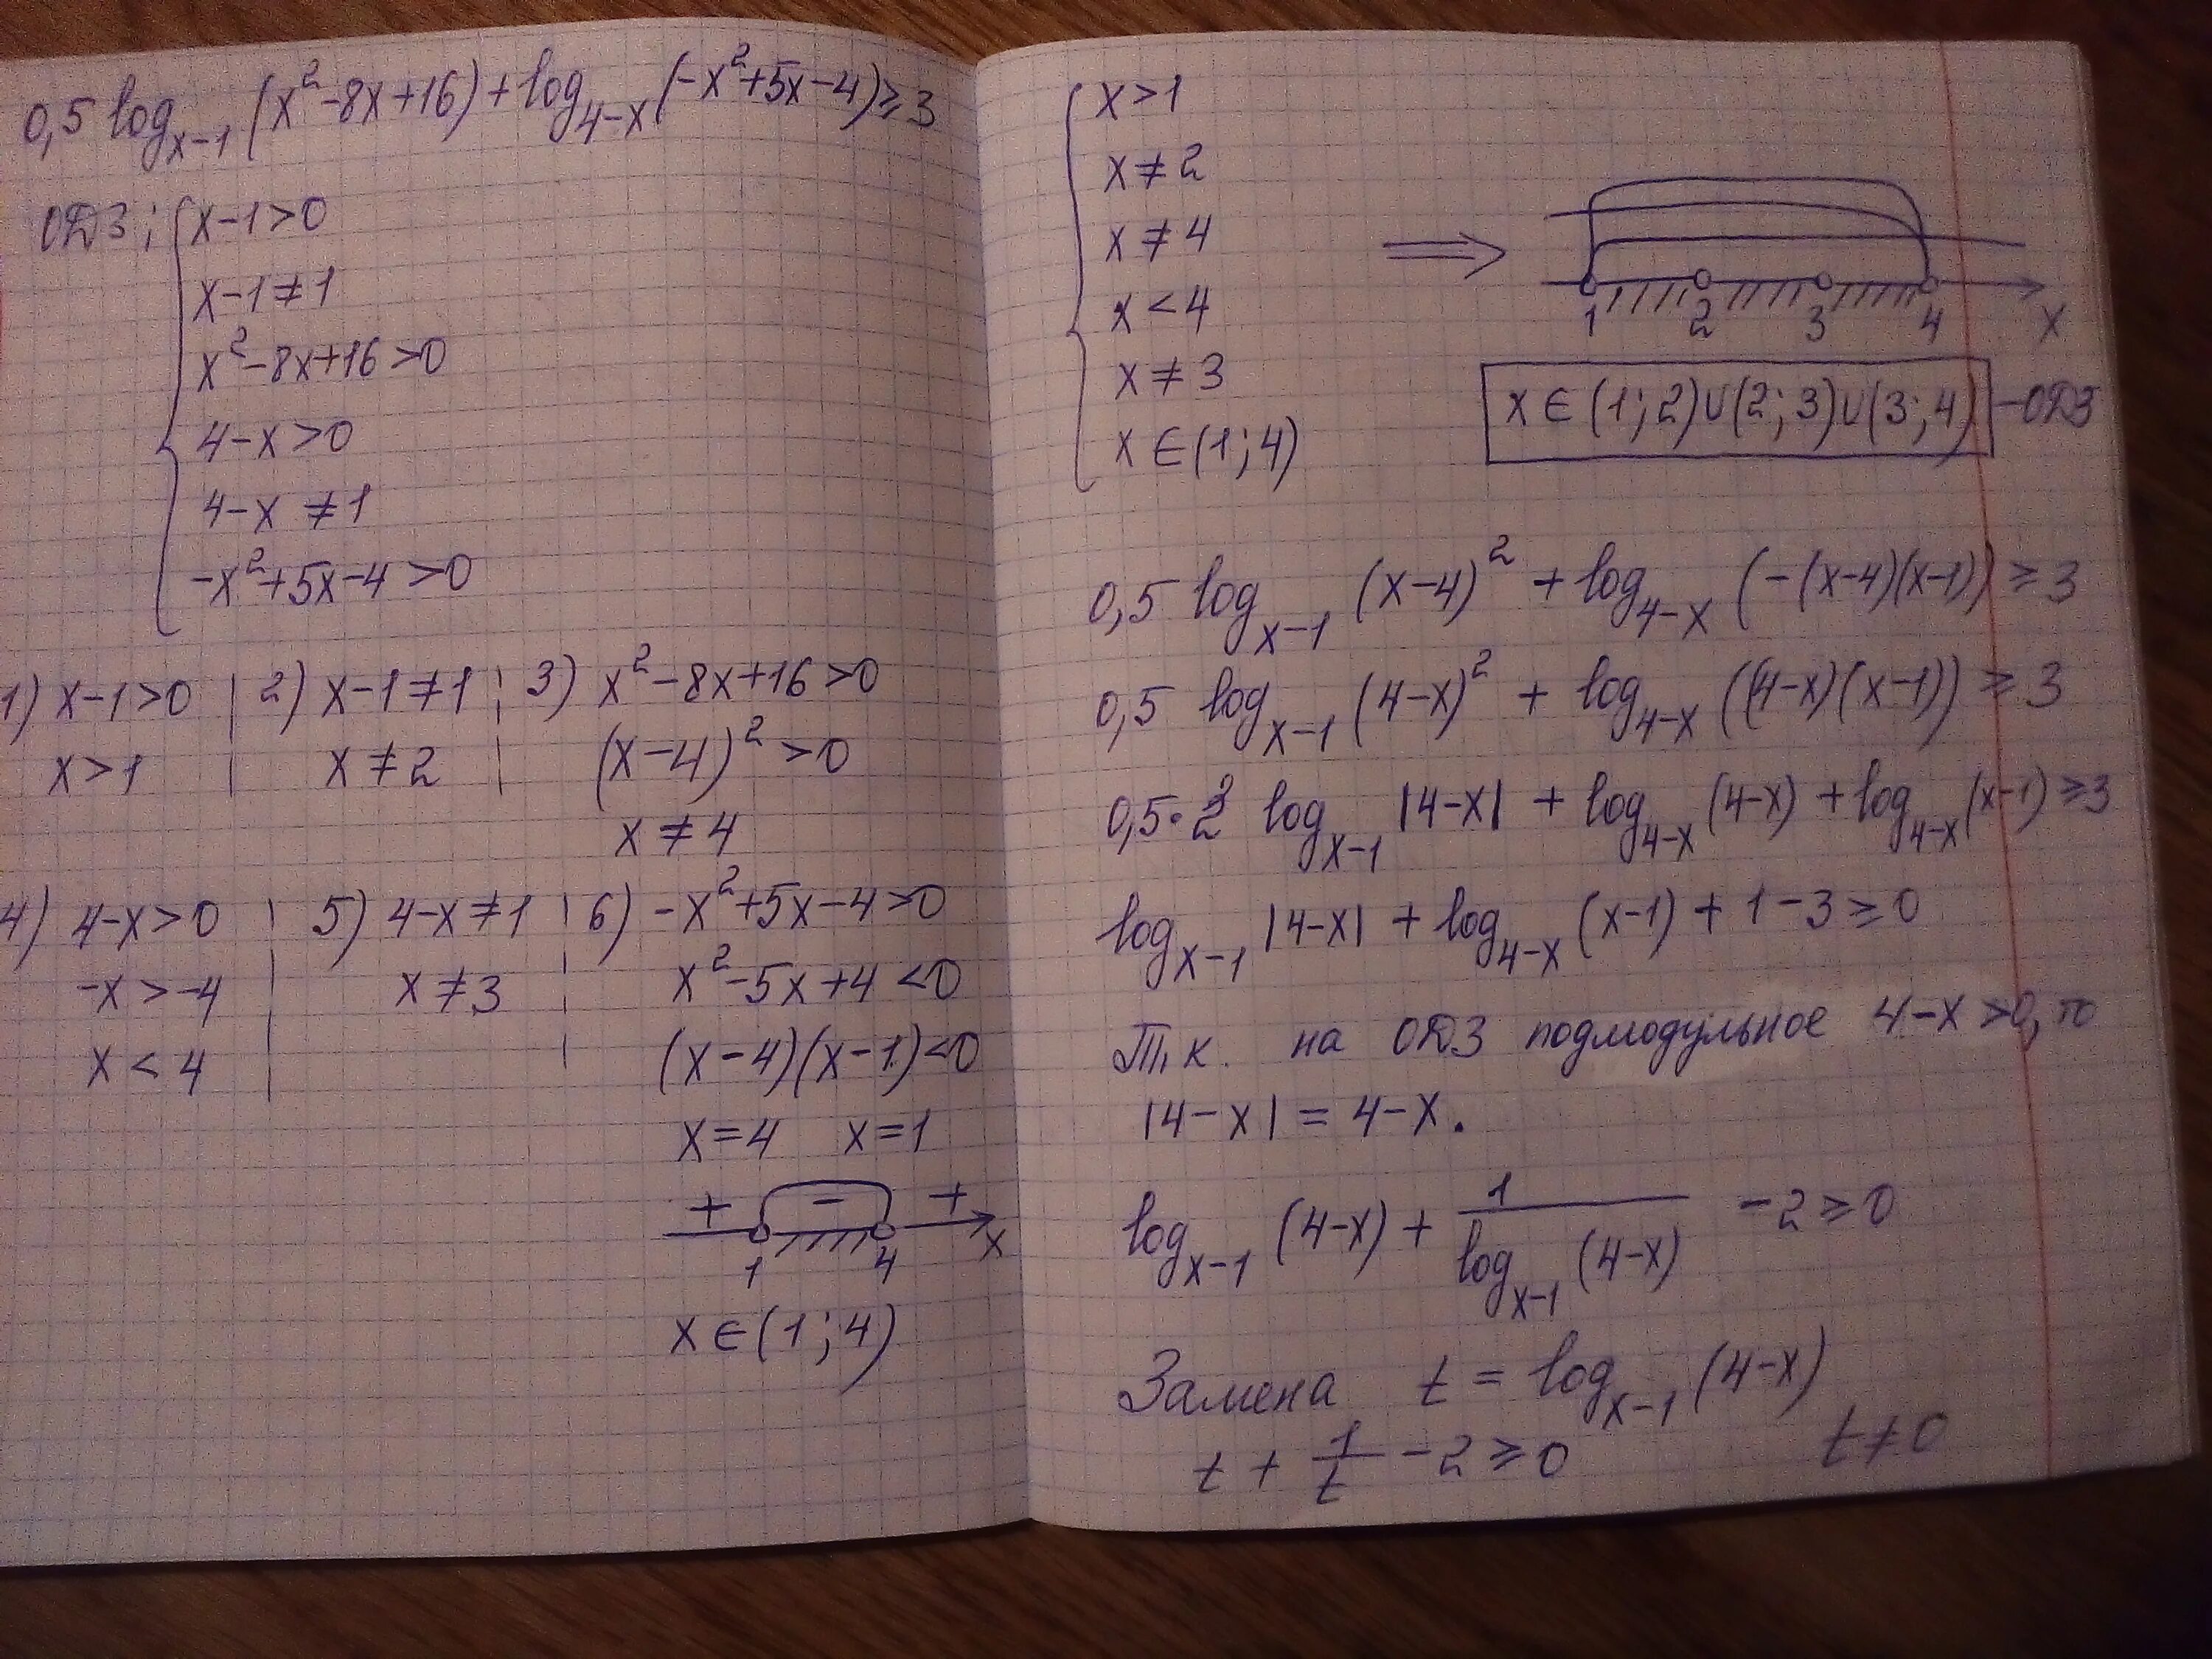 0,5 log_{x-1} (x²-8x+16) + log_{4-x} (-x²+5x-4) ≥ 3
ОДЗ: { x-1>0
x-1≠1
x²-8x+16>0
4-x>0
4-x ≠1
-x²+5x-4>0
1) x-1>0 | 2) x-1≠1 | 3) x²-8x+16>0
x>1 | x≠2 | (x-4)²>0
x≠4
4) 4-x>0 | 5) 4-x≠1 | 6) -x²+5x-4>0
-x>-4 | x≠3 | x²-5x+4<0
x<4 | (x-4)(x-1)<0
x=4 x=1
+ - +
1 4 x
x∈(1;4)
{ x>1
x≠2
x≠4
x<4
x≠3
x∈(1;4)
⟹
1 2 3 4 x
x∈(1;2)∪(2;3)∪(3;4) -ОДЗ
0,5 log_{x-1} (x-4)² + log_{4-x} (-(x-4)(x-1)) ≥ 3
0,5 log_{x-1} (4-x)² + log_{4-x} ((4-x)(x-1)) ≥ 3
0,5·2 log_{x-1} |4-x| + log_{4-x} (4-x) + log_{4-x} (x-1) ≥3
log_{x-1} |4-x| + log_{4-x} (x-1) + 1-3 ≥ 0
Т.к. на ОДЗ подмодульное 4-x>0, то
|4-x| = 4-x.
log_{x-1} (4-x) + 1/log_{x-1} (4-x) -2 ≥ 0
Замена t = log_{x-1} (4-x)
t + 1/t -2 ≥ 0 t≠0